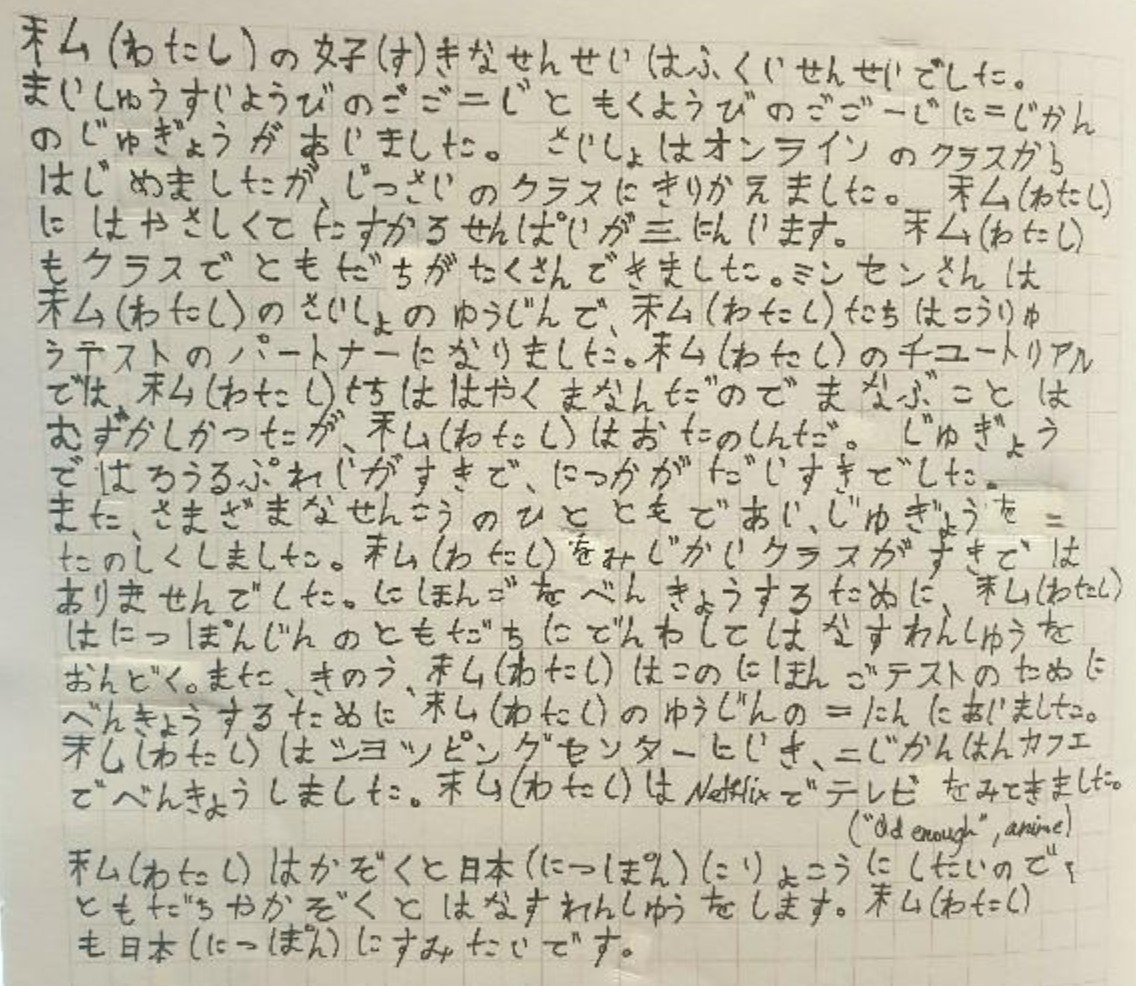 私(わたし)の好(す)きなせんせいはふくいせんせいでした。
まいしゅうすいようびのごご二じともくようびのごご一じに二じかん
のじゅぎょうがあいました。さいしょはオンラインのクラスから
はじめましたが、じっさいのクラスにきりかえました。私(わたし)
にはやさしくてたすかるせんぱいが三にんいます。私(わたし)
もクラスでともだちがたくさんできました。ミンセンさんは
私(わたし)のさいしょのゆうじんで、私(わたし)たちはこうりゅ
うテストのパートナーになりました。私(わたし)のチュートリアル
では、私(わたし)たちははやくまなんだのでまなぶことは
むずかしかったが、私(わたし)はおたのしんだ。じゅぎょう
ではろうるぷれいがすきで、にっかがだいすきでした。
また、さまざまなせんこうのひとともであい、じゅぎょうを
たのしくしました。私(わたし)をみじかいクラスがすきでは
ありませんでした。にほんごをべんきょうするために、私(わたし)
はにっぽんじんのともだちにでんわしてはなすれんしゅうを
おんどく。また、きのう、私(わたし)はこのにほんごテストのために
べんきょうするために私(わたし)のゆうじんの二にんにあいました。
私(わたし)はショッピングセンターヒいき、二じかんはんカフェ
でべんきょうしました。私(わたし)はNetflixでテレビをみてきました。
("Old enough", anime)
私(わたし)はかぞくと日本(にっぽん)にりょこうにしたいので、
ともだちやかぞくとはなすれんしゅうをします。私(わたし)
も日本(にっぽん)にすみたいです。